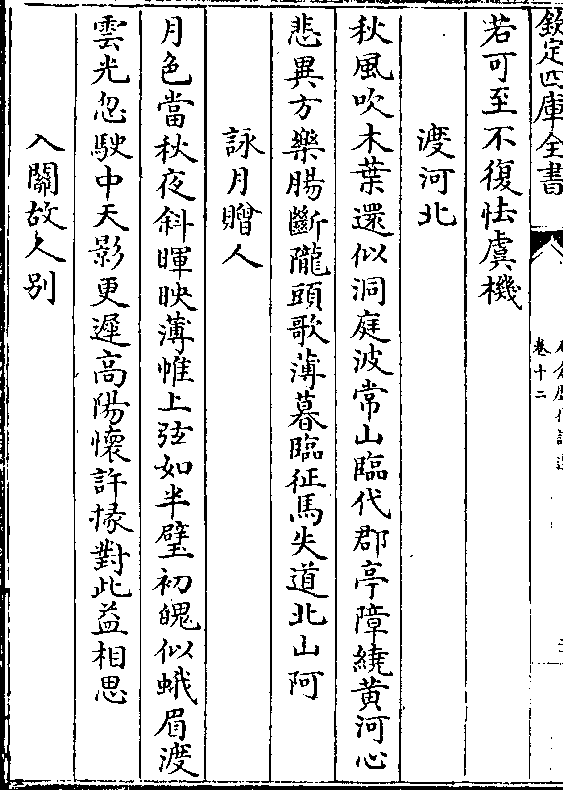 欽定四庫全書
卷十二
若可至不復怯虞機
渡河北
秋風吹木葉還似洞庭波常山臨代郡亭障繞黃河心
悲異方樂腸斷隴頭歌薄暮臨征馬失道北山阿
詠月贈人
月色當秋夜斜暉映薄帷上弦如半璧初魄似蛾眉渡
雲光忽駛中天影更遲高陽懷許掾對此益相思
入關故人别